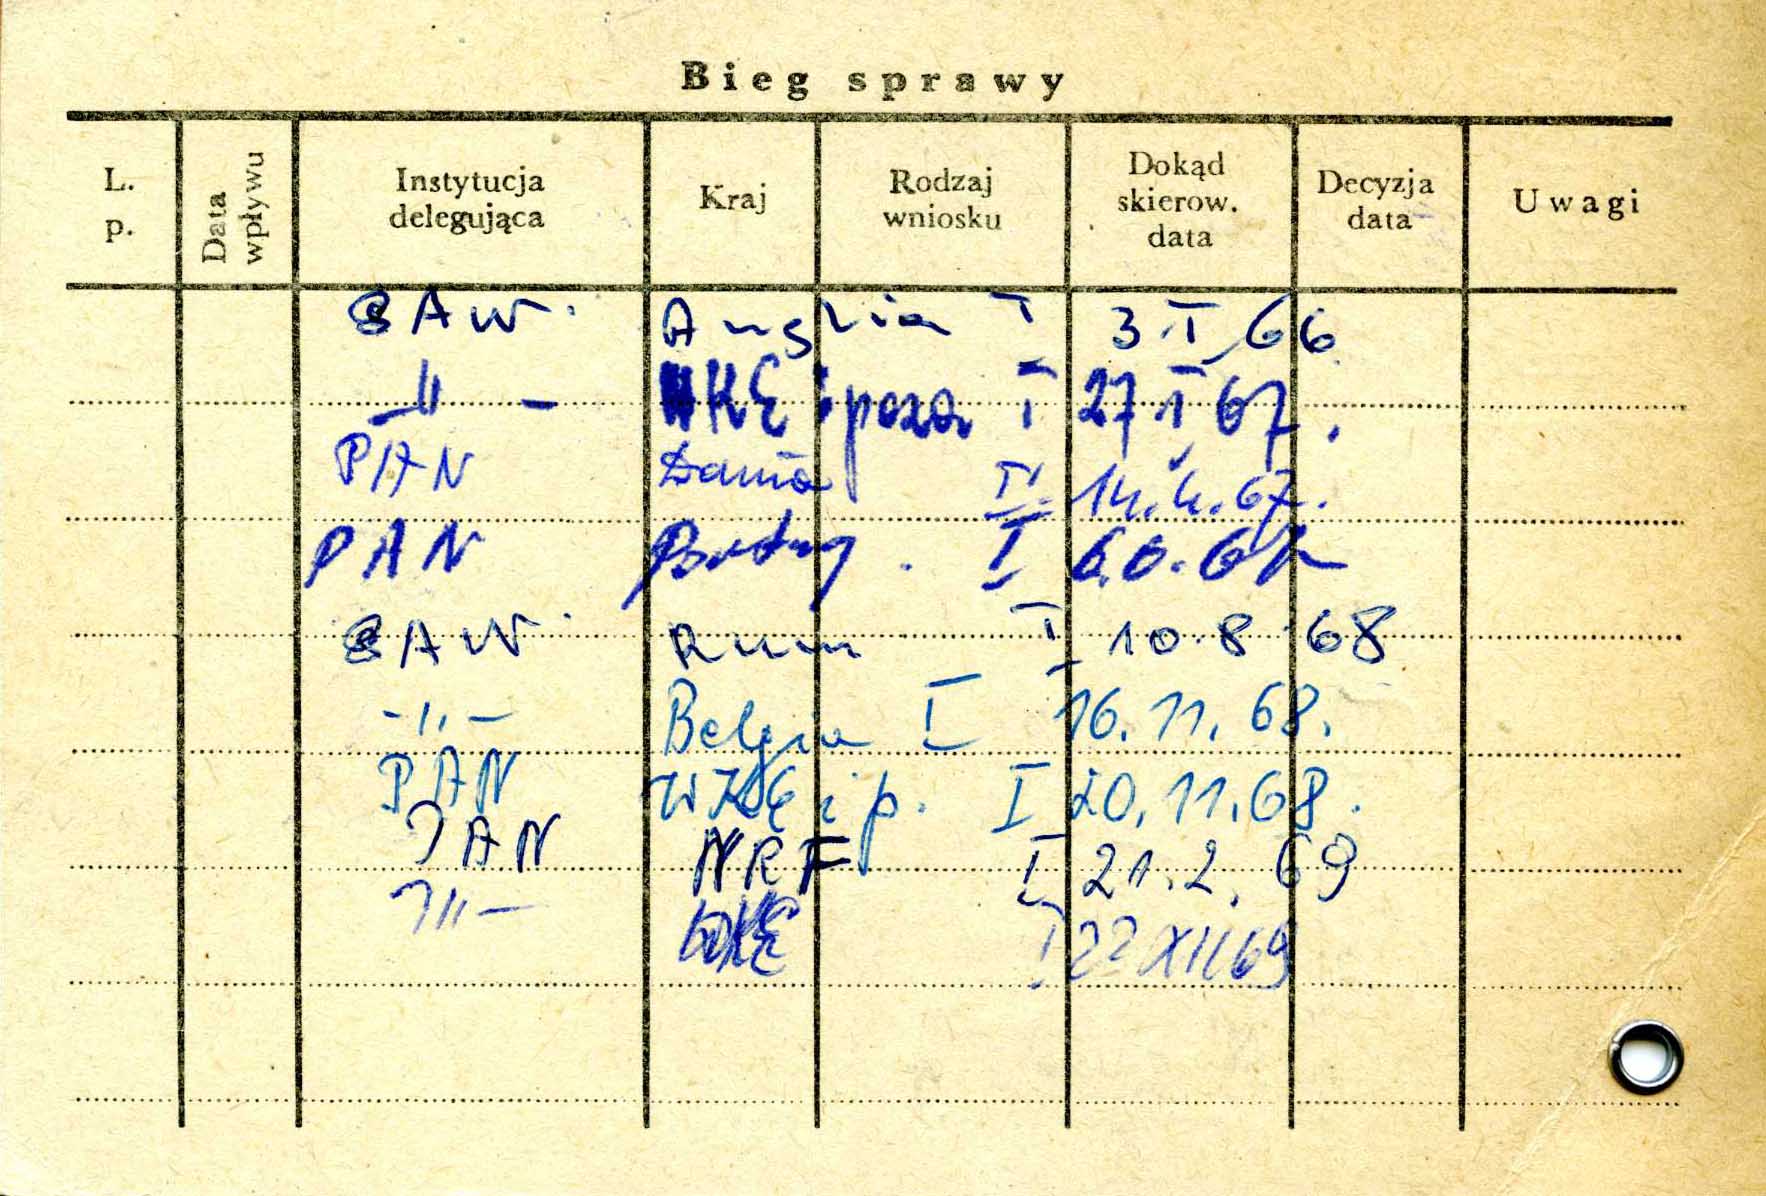 Bieg sprawy
L. p. Data wpływu Instytucja delegująca Kraj Rodzaj wniosku Dokąd skierow. data Decyzja data Uwagi
SAW. Anglia I 3 I 66
—〃— WKE i poza I 27 I 67.
PAN Dania 14.4.67.
PAN I
SAW. Rum I 10.8 68
-〃- Belgia I 16.11.68.
PAN WKE i p. I 20.11.68.
PAN NRF I 21.2.69
-〃- WKE I 22 XII 69